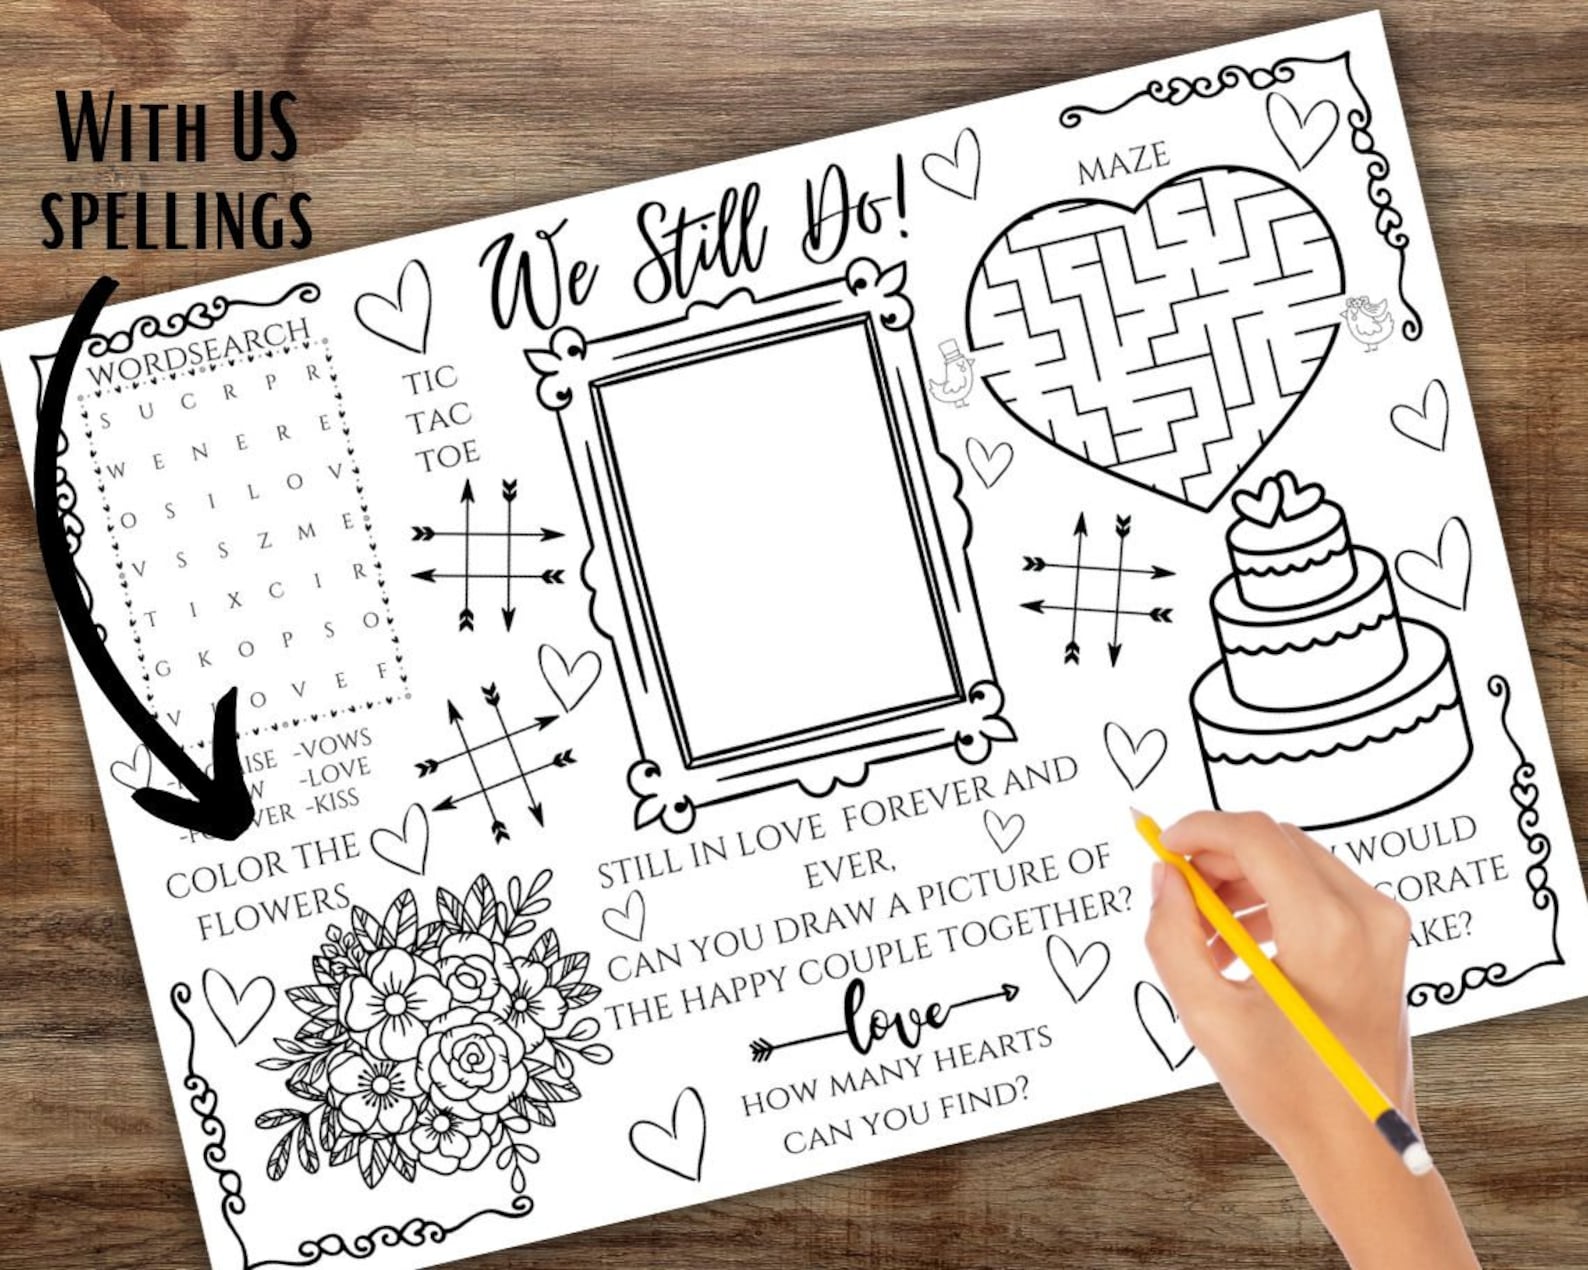 WITH US
SPELLINGS
We Still Do!
MAZE
WORDSEARCH
S U C R P R
W E N E R E
O S I L O V
V S S Z M E
T I X C I R
G K O P S O
V O V E F
-VOWS
-LOVE
-KISS
TIC
TAC
TOE
COLOR THE
FLOWERS
STILL IN LOVE FOREVER AND
EVER,
CAN YOU DRAW A PICTURE OF
THE HAPPY COUPLE TOGETHER?
love
HOW MANY HEARTS
CAN YOU FIND?
WOULD